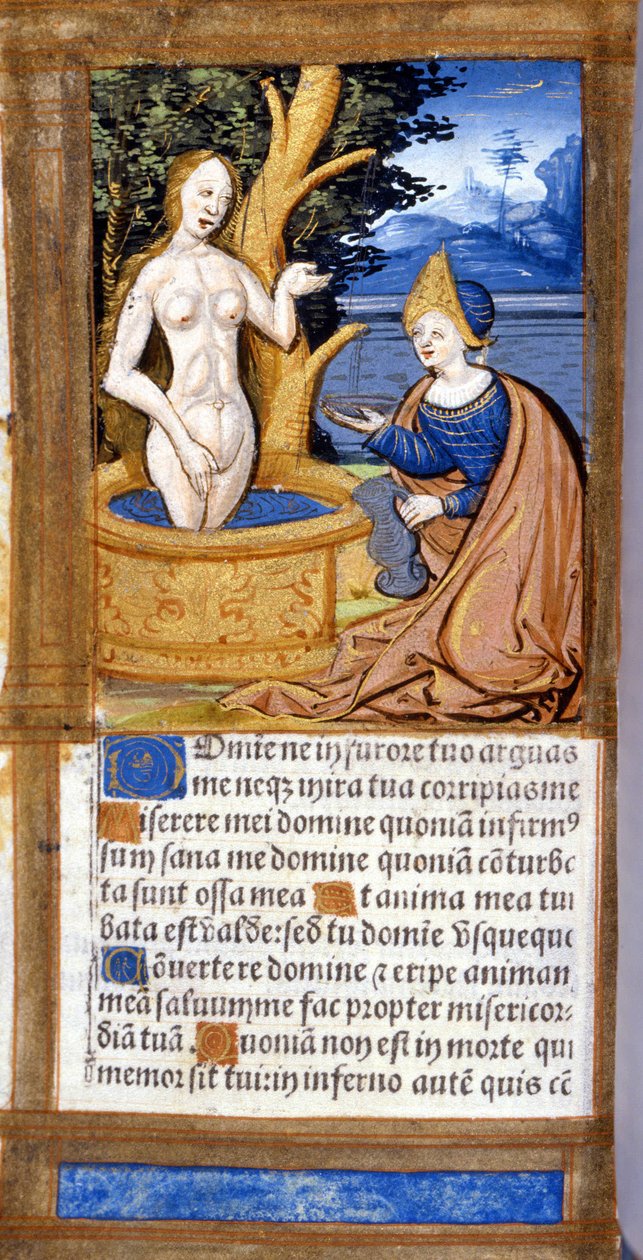 Domīe ne in furore tuo arguas
me neqꝫ in ira tua corripias me
Miserere mei domine quoniā infirmꝰ
sum sana me domine quoniā cōturba
ta sunt ossa mea Et anima mea tur
bata est valde: sed tu domīe vsquequo
Cōuertere domine ⁊ eripe animam
meā saluum me fac propter misericor:
diā tuā. Quoniā non est in morte qui
memor sit tui: in inferno autē quis cō